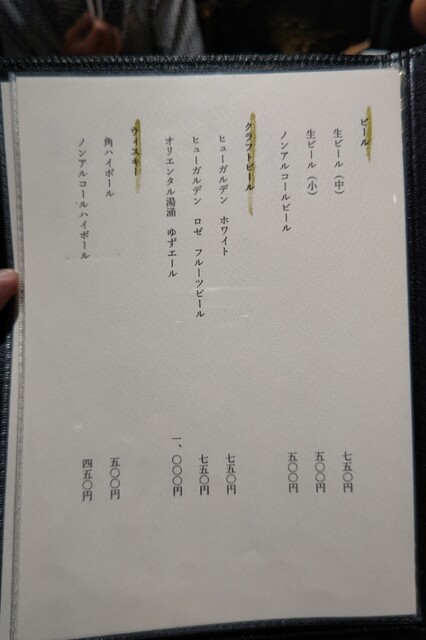 ビール
生ビール（中） 七五〇円
生ビール（小） 五〇〇円
ノンアルコールビール 五〇〇円
クラフトビール
ヒューガルデン ホワイト 七五〇円
ヒューガルデン ロゼ フルーツビール 七五〇円
オリエンタル湯涌 ゆずエール 一、〇〇〇円
ウィスキー
角ハイボール 五〇〇円
ノンアルコールハイボール 四五〇円